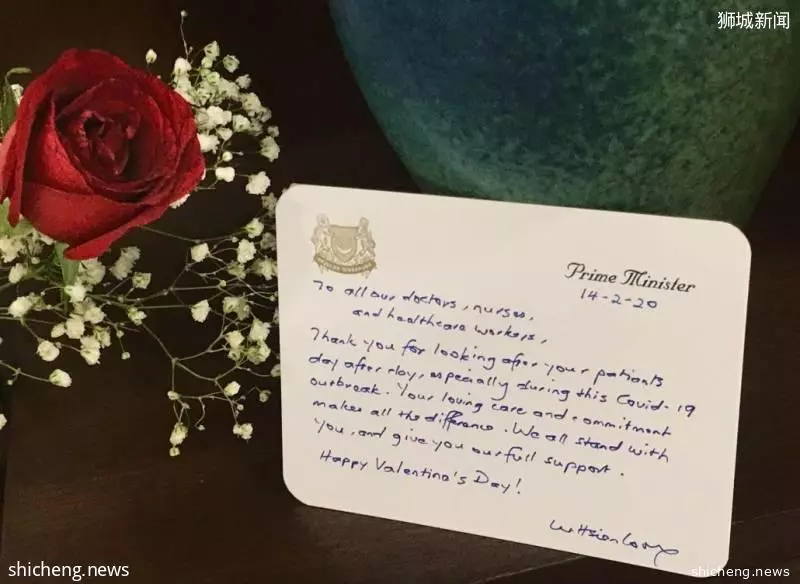 狮城新闻
Prime Minister
14-2-20
To all our doctors, nurses,
and healthcare workers,
Thank you for looking after your patients
day after day, especially during this Covid-19
outbreak. Your loving care and commitment
makes all the difference. We all stand with
you, and give you our full support.
Happy Valentine's Day!
Lee Hsien Loong
shicheng.news
shicheng.news